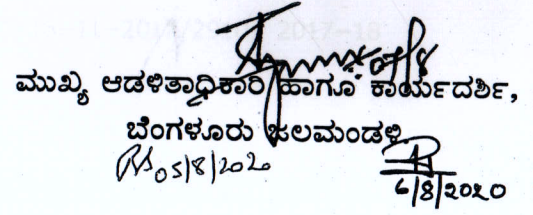 ಮುಖ್ಯ ಆಡಳಿತಾಧಿಕಾರಿ ಹಾಗೂ ಕಾರ್ಯದರ್ಶಿ,
ಬೆಂಗಳೂರು ಜಲಮಂಡಳಿ
05/8/2020
6/8/2020